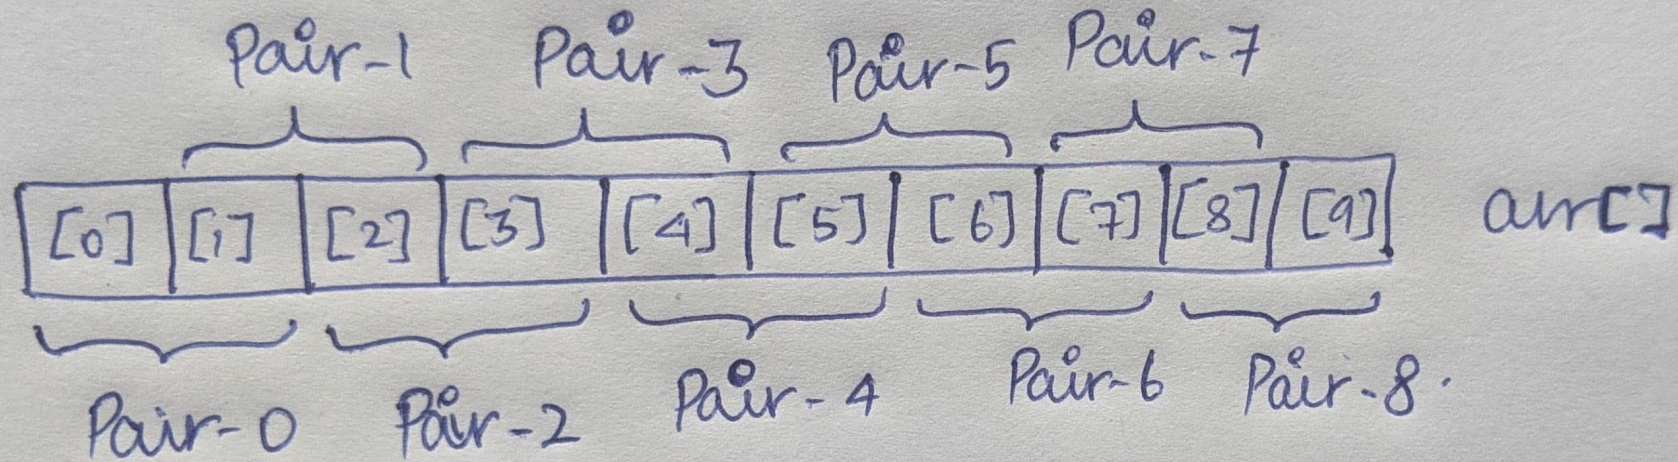 Pair-1 Pair-3 Pair-5 Pair-7
[0] [1] [2] [3] [4] [5] [6] [7] [8] [9] arr[]
Pair-0 Pair-2 Pair-4 Pair-6 Pair-8.